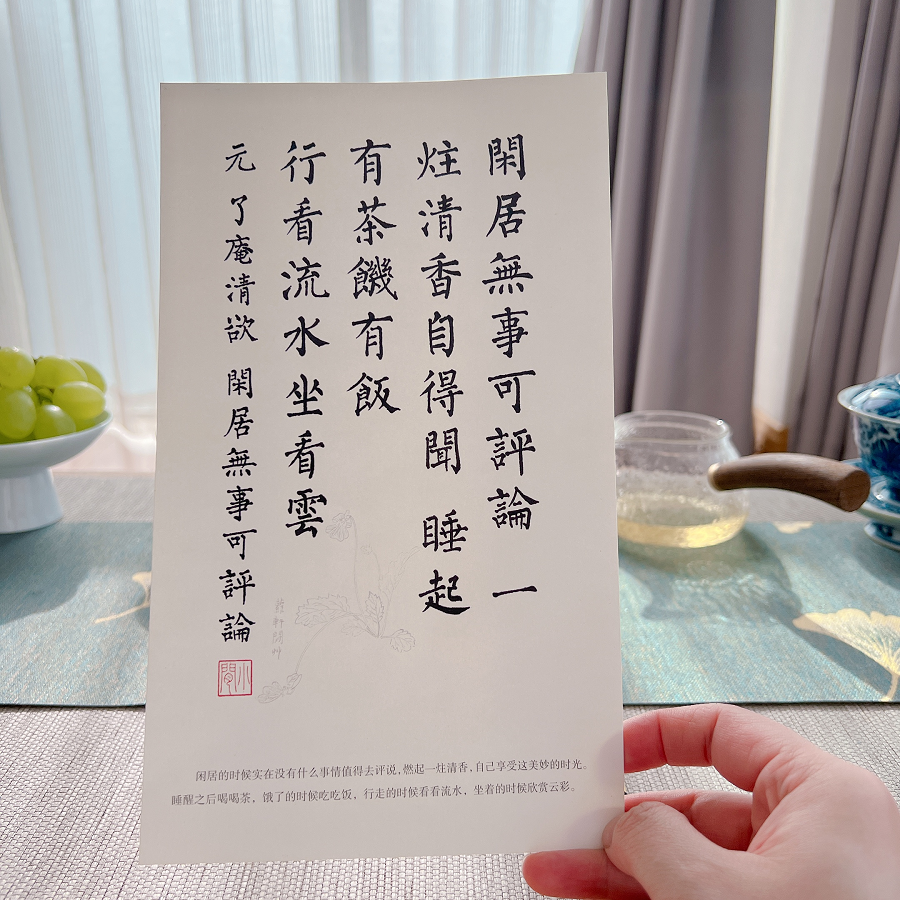 閑居無事可評論 一
炷清香自得聞 睡起
有茶饑有飯
行看流水坐看雲
元 了庵清欲 閑居無事可評論
小閑
闲居的时候实在没有什么事情值得去评说，燃起一炷清香，自己享受这美妙的时光。
睡醒之后喝喝茶，饿了的时候吃吃饭，行走的时候看看流水，坐着的时候欣赏云彩。